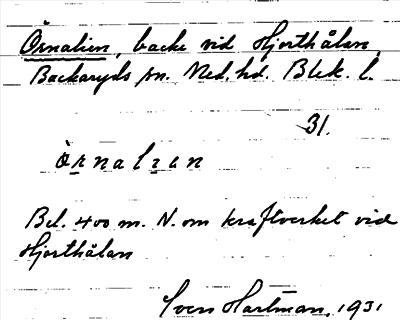 Örnalien, backe vid Hjorthålan,
Backaryds sn. Med. hd. Blek. l.
31.
Bel. 400 m. N. om kraftverket vid
Hjorthålan
Sven Hartman, 1931